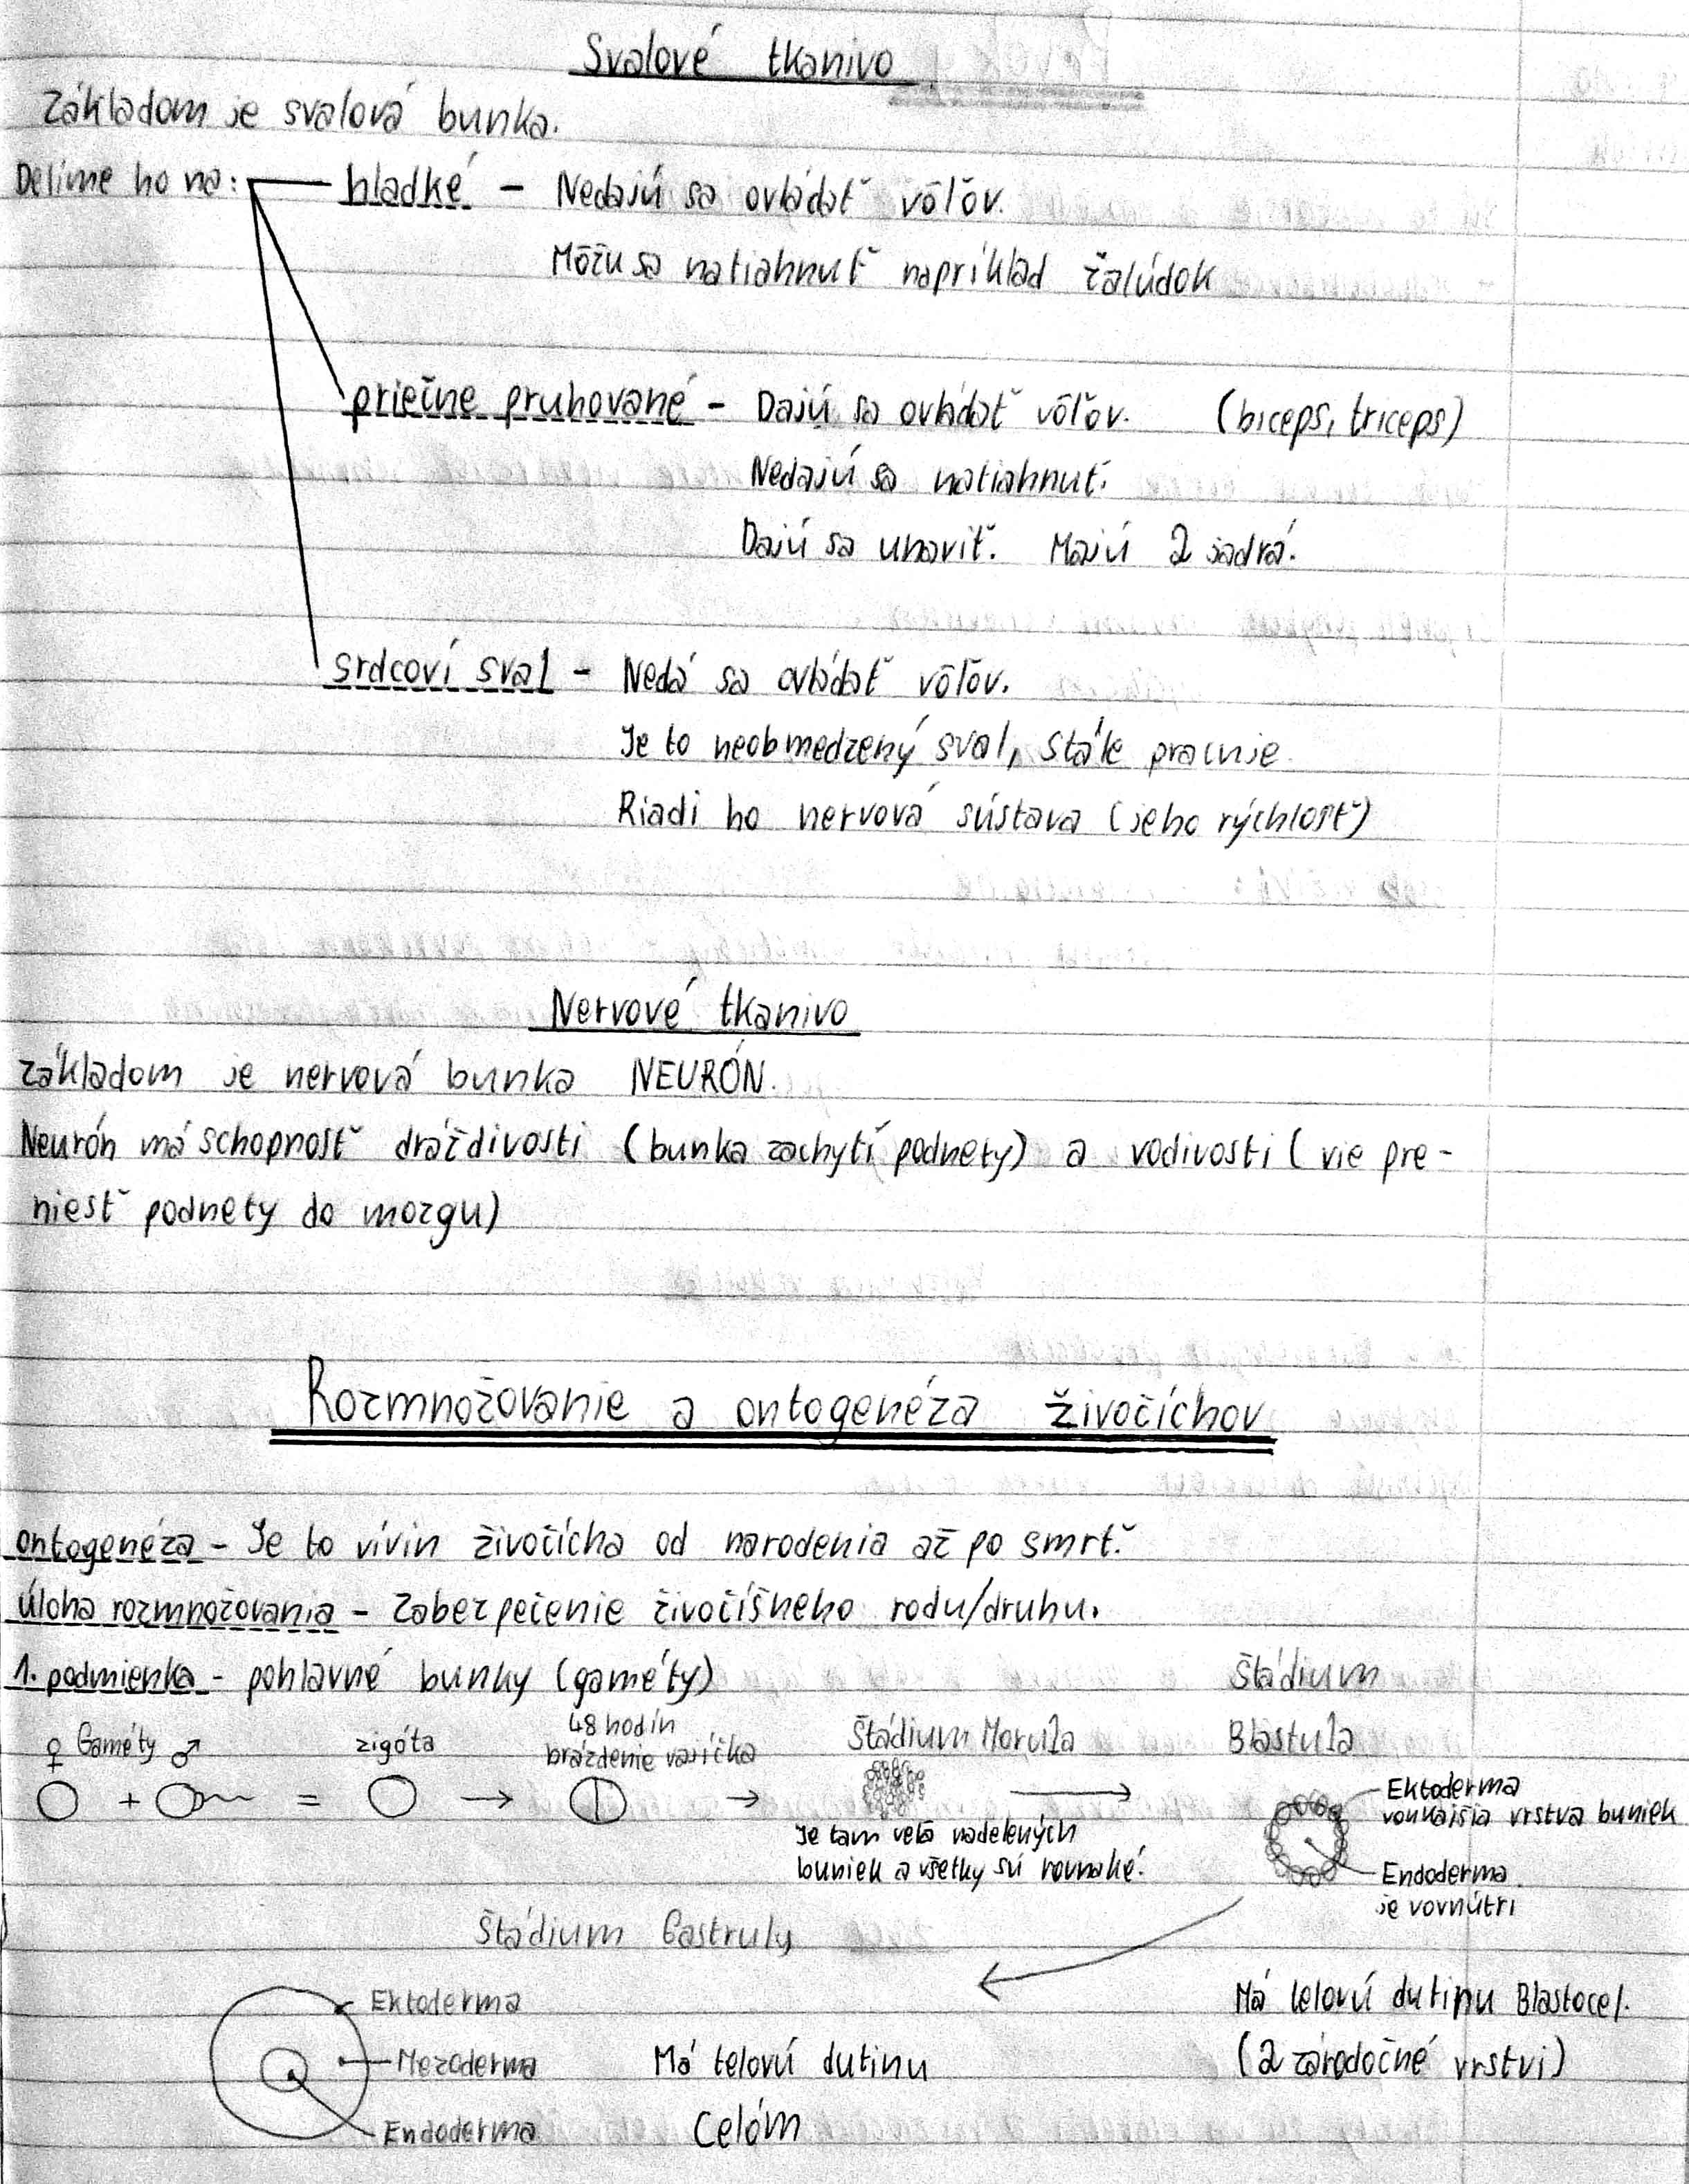 Svalové tkanivo
Základom je svalová bunka.
Delíme ho na: hladké - Nedajú sa ovládať vôľov.
Môžu sa natiahnuť napríklad žalúdok
priečne pruhované - Dajú sa ovládať vôľov. (biceps, triceps)
Nedajú sa natiahnuť.
Dajú sa unaviť. Majú 2 jadrá.
srdcoví sval - Nedá sa ovládať vôľov.
Je to neobmedzený sval, stále pracuje.
Riadi ho nervová sústava (jeho rýchlosť)
Nervové tkanivo
Základom je nervová bunka NEURÓN.
Neurón má schopnosť dráždivosti (bunka zachytí podnety) a vodivosti (vie pre-
niesť podnety do mozgu)
Rozmnožovanie a ontogenéza živočíchov
ontogenéza - Je to vívin živočícha od narodenia až po smrť.
Úloha rozmnožovania - Zabezpečenie živočíšneho rodu/druhu.
1. podmienka - pohlavné bunky (gaméty)
♀ Gaméty ♂
+ =
zigóta
→
48 hodín
brázdenie vajíčka
→
Štádium Morula
Je tam veľa nadelených
buniek a všetky sú rovnaké.
Štádium
Blastula
Ektoderma
vonkajšia vrstva buniek
Endoderma
je vovnútri
Má telovú dutinu Blastocel.
(2 zárodočné vrstvi)
Štádium Gastruly
Ektoderma
Mezoderma
Endoderma
Má telovú dutinu
Celóm